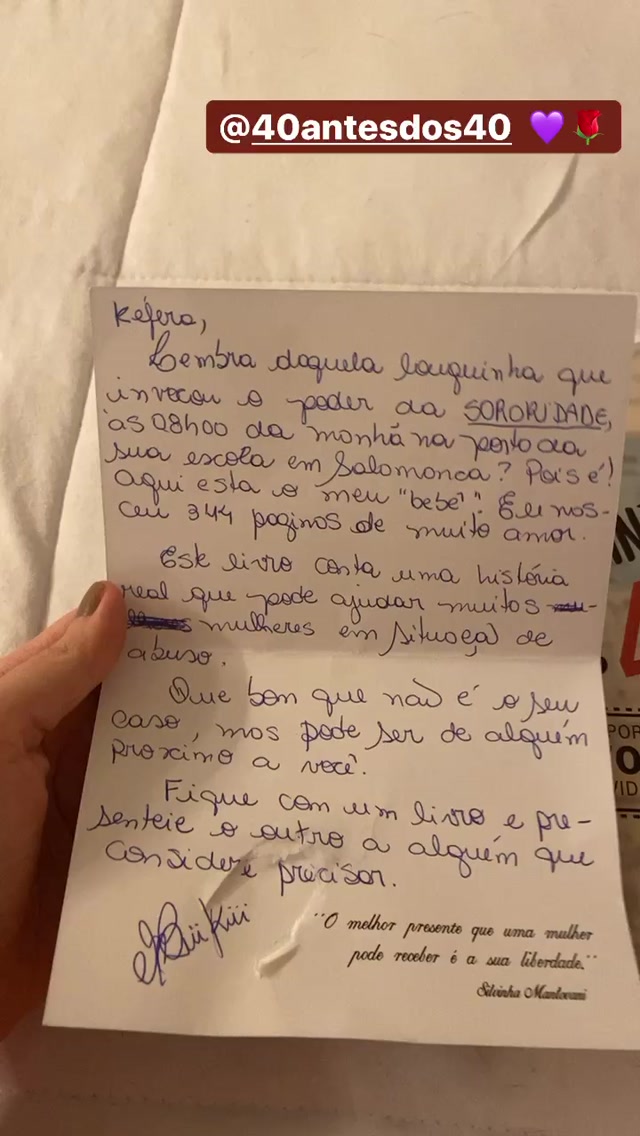 @40antesdos40 💜🌹
Kéfera,
Lembra daquela louquinha que
invocou o poder da SORORIDADE,
às 08h00 da manhã na porta da
sua escola em Salamanca? Pois é!
Aqui esta o meu "bebê". Ele nas-
ceu 344 paginas de muito amor.
Este livro conta uma história
real que pode ajudar muitas
mulheres em situaçã de
abuso.
Que bom que não é o seu
caso, mas pode ser de alguém
proximo a você.
Fique com um livro e pre-
senteie o outro a alguém que
considere precisar.
"O melhor presente que uma mulher
pode receber é a sua liberdade."
Silvinha Mantovani
POR
VID